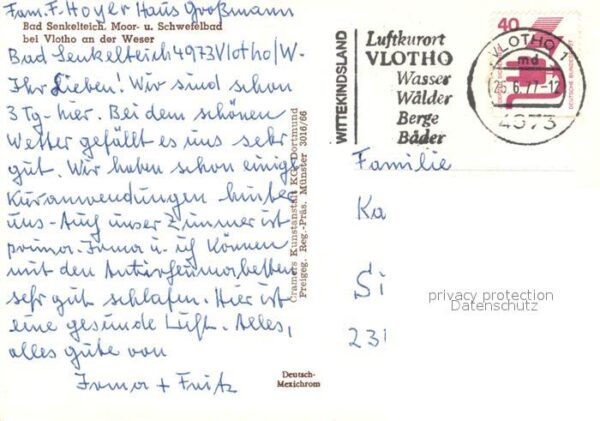 Fam. F. Hoyer Haus Großmann
Bad Senkelteich, Moor- u. Schwefelbad
bei Vlotho an der Weser
Bad Senkelteich 4973 Vlotho/W-
Ihr Lieben! Wir sind schon
3 Tg. hier. Bei dem schönen
Wetter gefällt es uns sehr
gut. Wir haben schon einige
Kuranwendungen hinter
uns - Auch unser Zimmer ist
prima. Irma u. ich können
mit den Antirheumabetten
sehr gut schlafen. Hier ist
eine gesunde Luft. Alles,
alles gute von
Irma + Fritz
Cramers Kunstanstalt KG, Dortmund
Freigeg. Reg.-Präs. Münster 3016/66
Deutsch-
Mexichrom
WITTEKINDSLAND
Luftkurort
VLOTHO
Wasser
Wälder
Berge
Bäder
40
DEUTSCHE BUNDESPOST
VLOTHO 1
md
25.6.77-12
4973
Familie
Ka
Si
231
privacy protection
Datenschutz